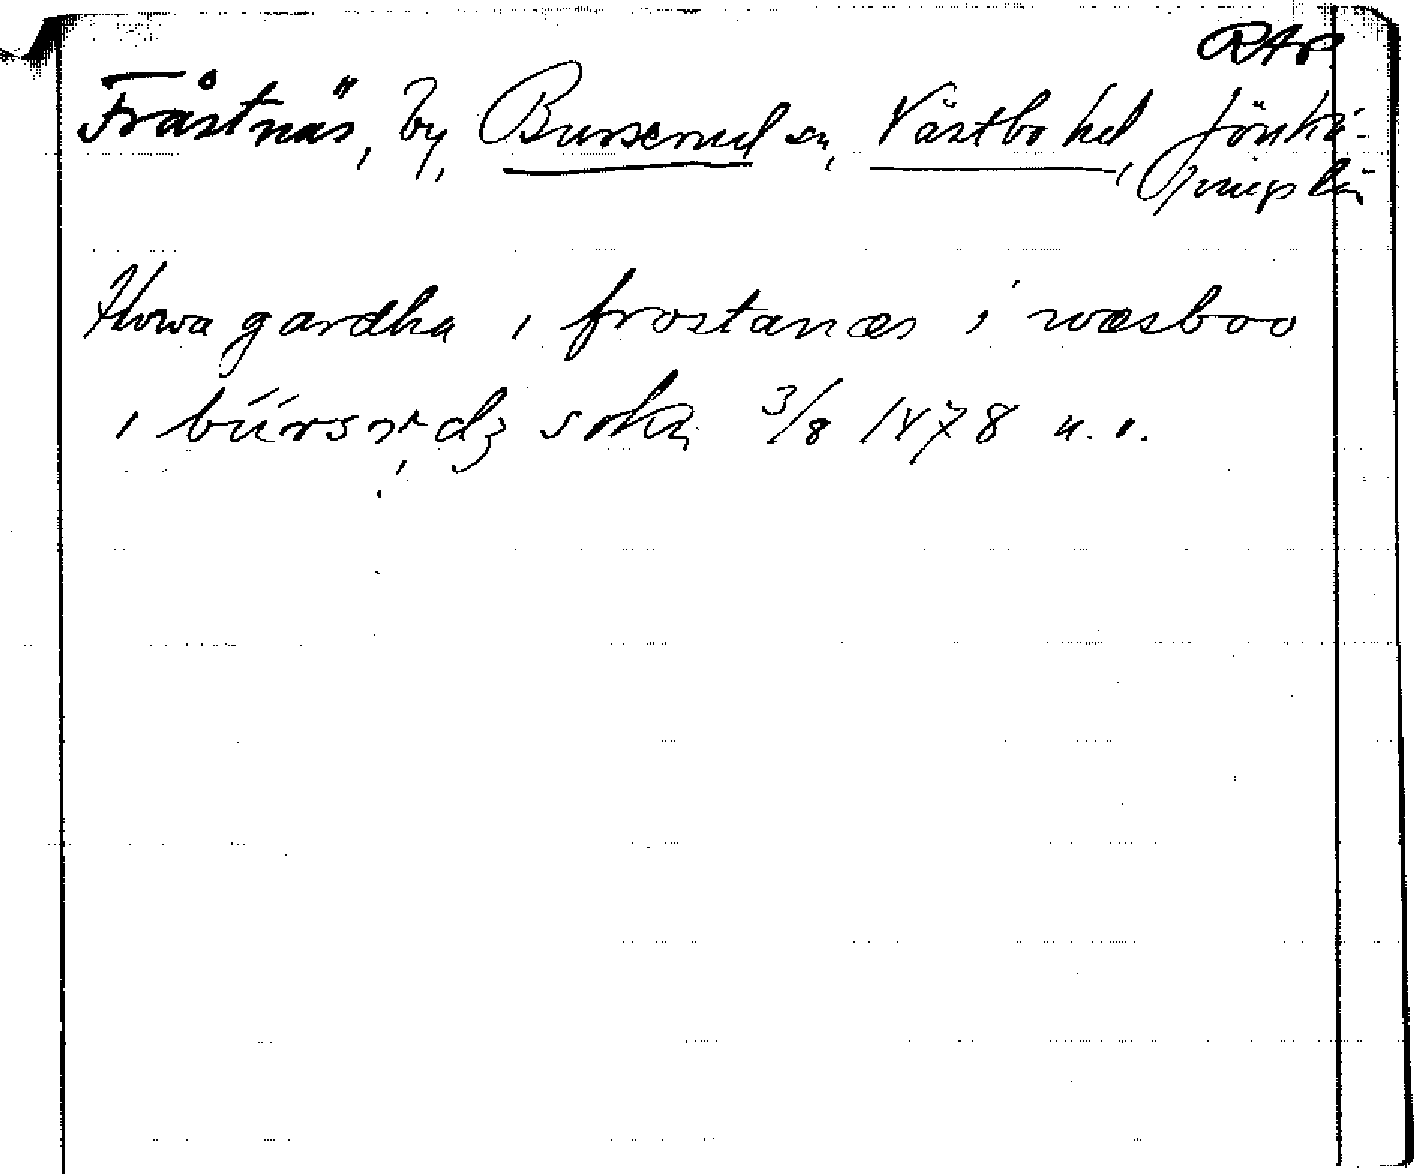 RAP.
Fråstnäs, by, Burseryd sn, Västbo hd, Jönkö-
pings län
thwa gardha i frostanæs i wæsboo
i bürsrydz sokn 3/8 1478 u. o.